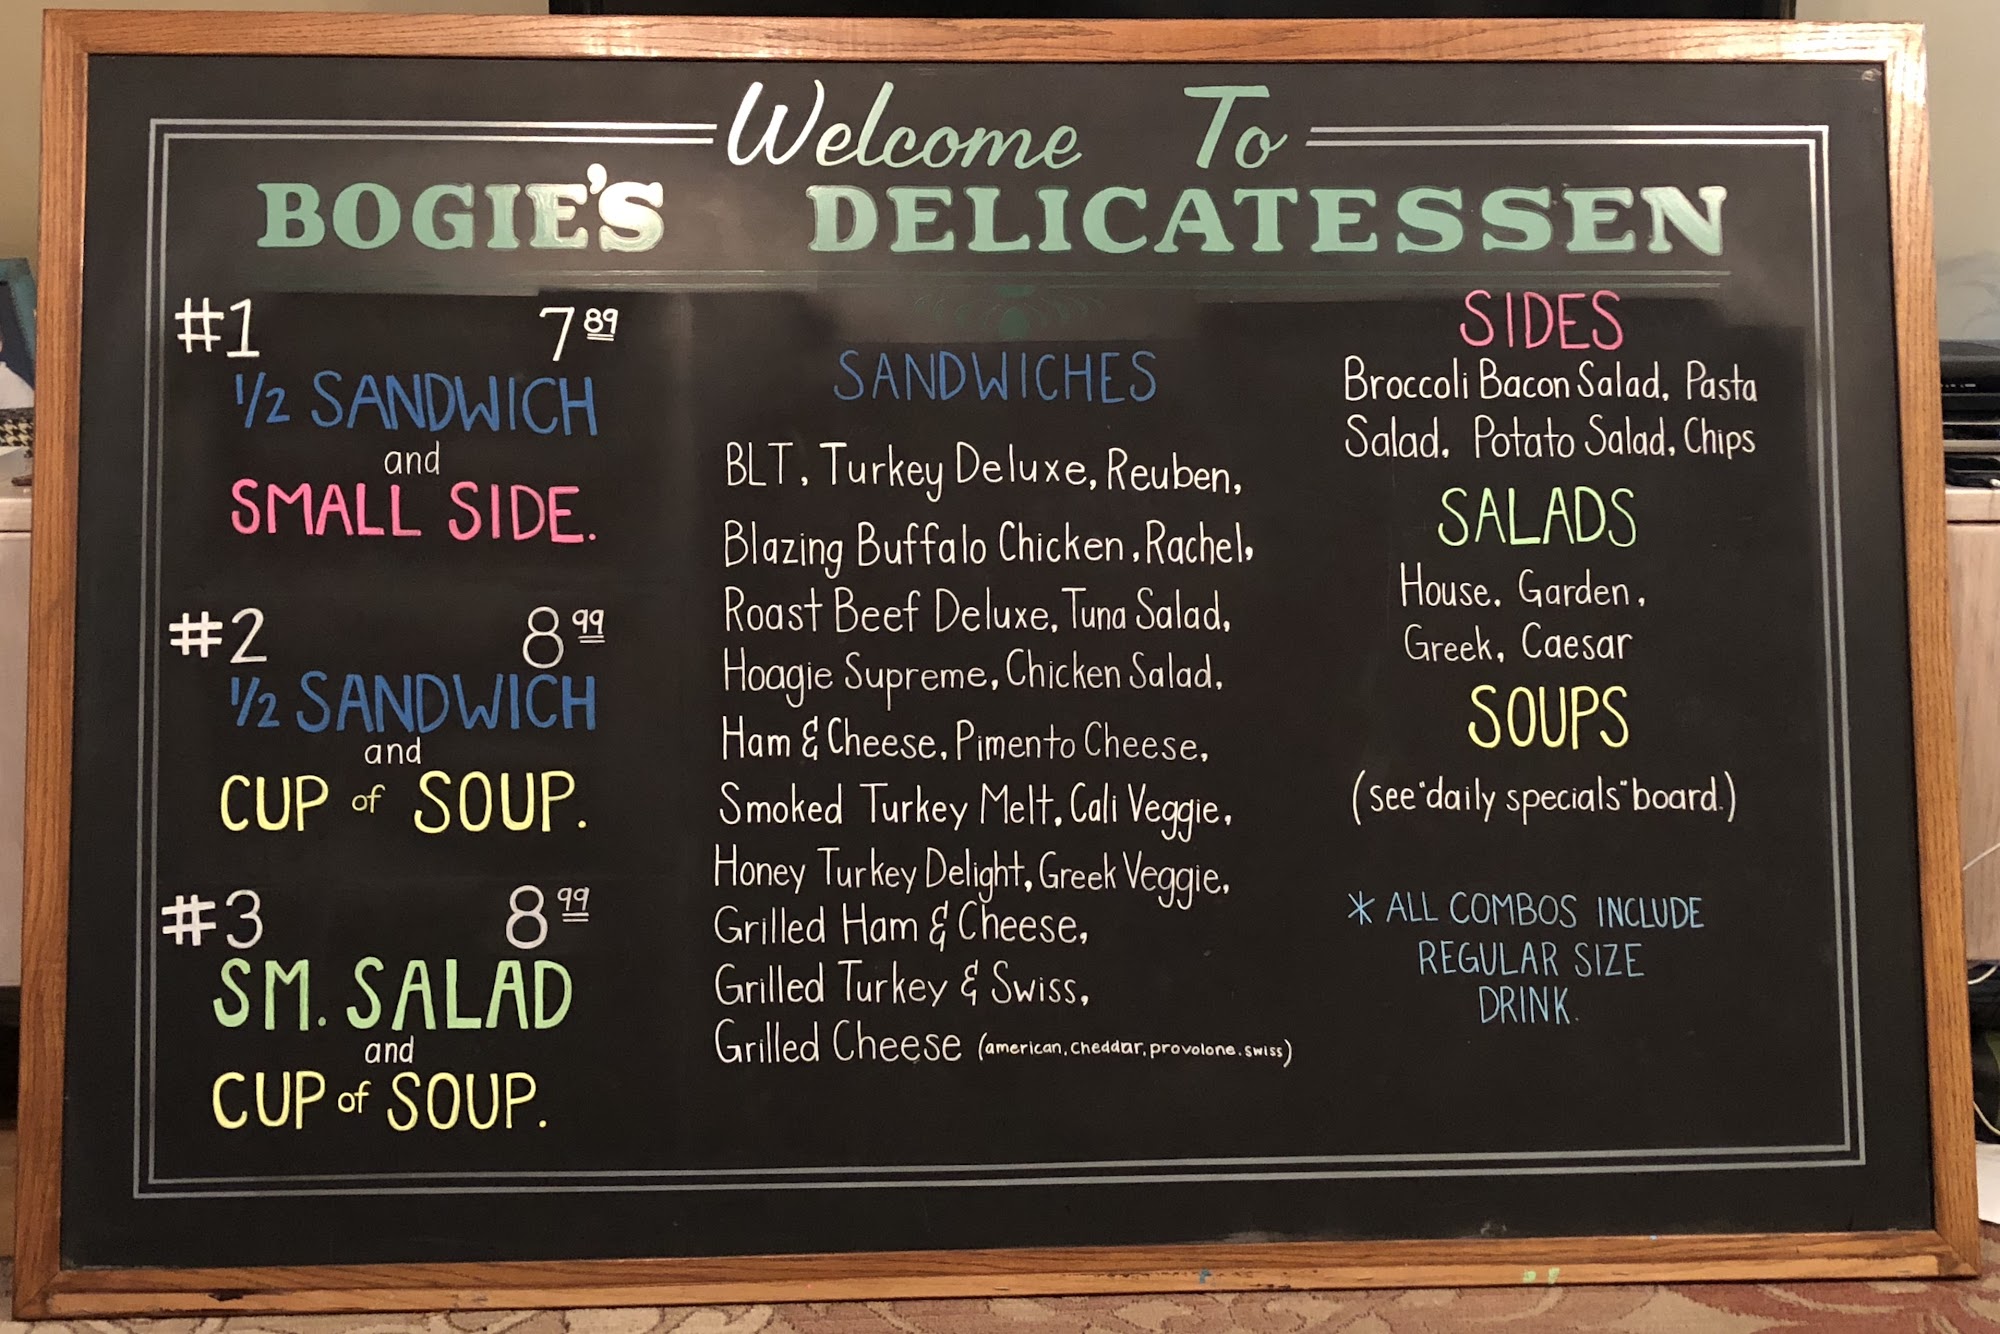 Welcome To
BOGIE'S DELICATESSEN
#1 7 89
1/2 SANDWICH
and
SMALL SIDE.
#2 8 99
1/2 SANDWICH
and
CUP of SOUP.
#3 8 99
SM. SALAD
and
CUP of SOUP.
SANDWICHES
BLT, Turkey Deluxe, Reuben,
Blazing Buffalo Chicken, Rachel,
Roast Beef Deluxe, Tuna Salad,
Hoagie Supreme, Chicken Salad,
Ham & Cheese, Pimento Cheese,
Smoked Turkey Melt, Cali Veggie,
Honey Turkey Delight, Greek Veggie,
Grilled Ham & Cheese,
Grilled Turkey & Swiss,
Grilled Cheese (american, cheddar, provolone. swiss)
SIDES
Broccoli Bacon Salad, Pasta
Salad, Potato Salad, Chips
SALADS
House. Garden,
Greek, Caesar
SOUPS
(see "daily specials" board.)
* ALL COMBOS INCLUDE
REGULAR SIZE
DRINK.